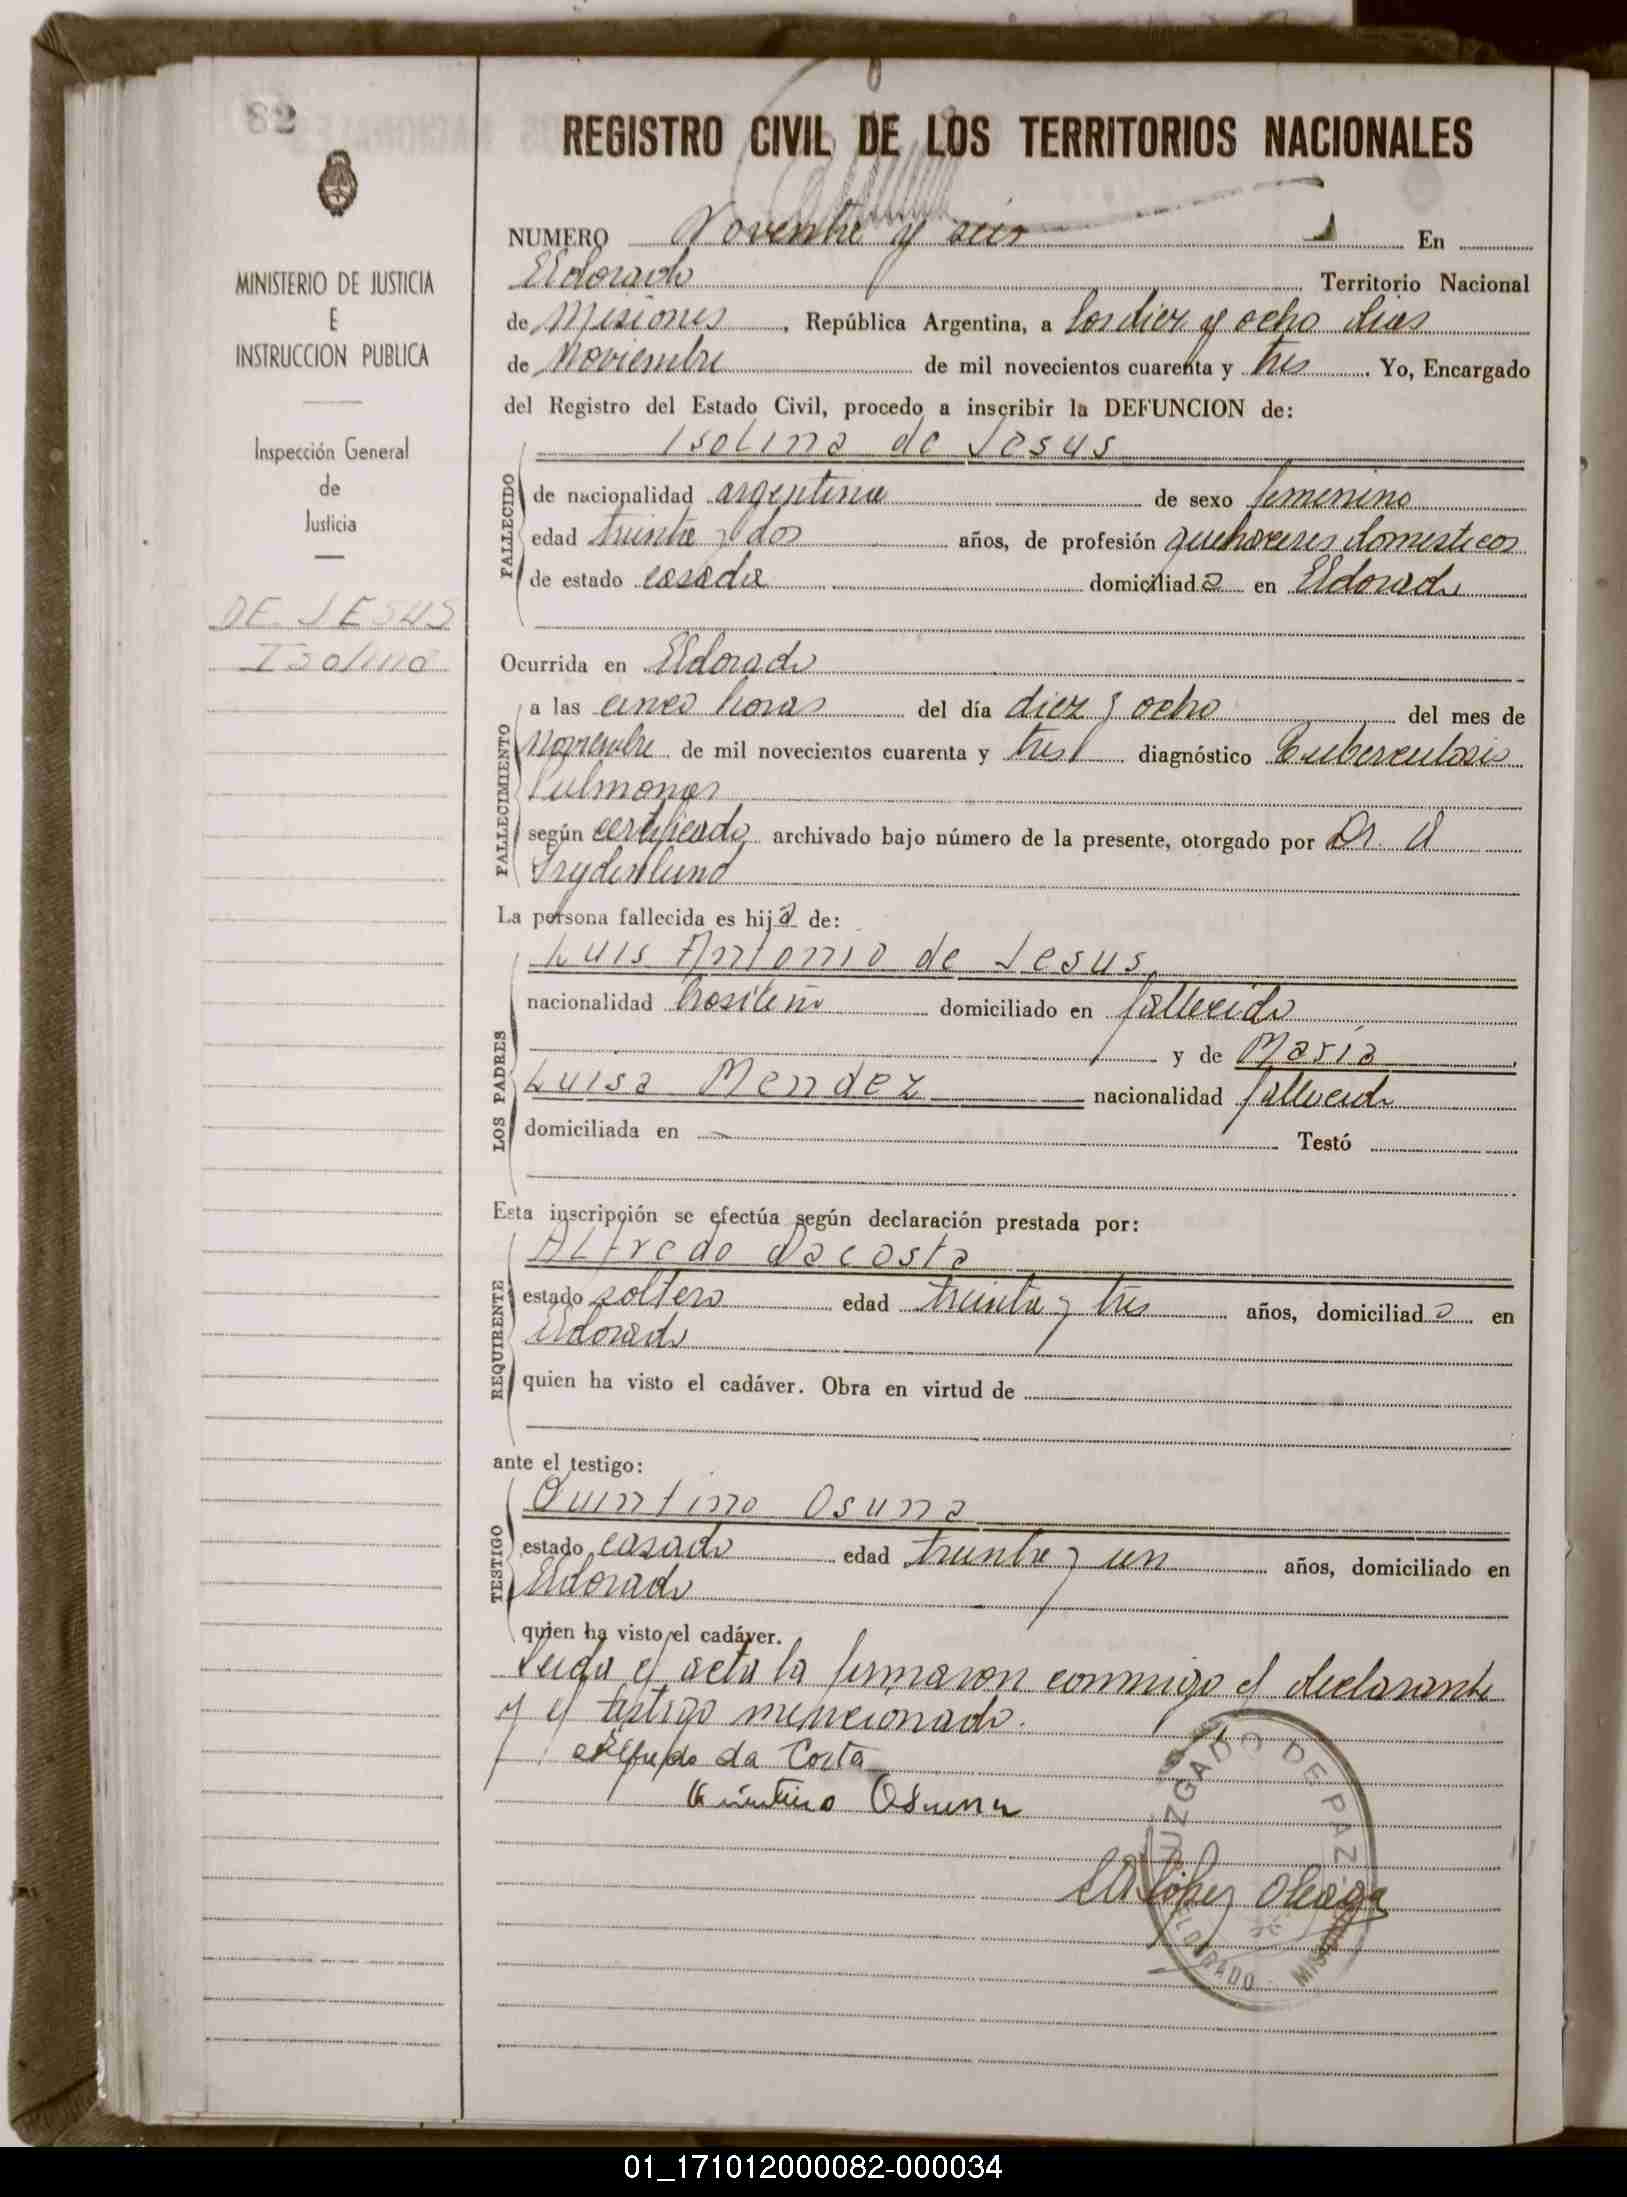 82
REGISTRO CIVIL DE LOS TERRITORIOS NACIONALES
MINISTERIO DE JUSTICIA
E
INSTRUCCION PUBLICA
Inspección General
de
Justicia
DE JESUS
Isolina
NUMERO Noventa y seis En
Eldorado Territorio Nacional
de Misiones, República Argentina, a los diez y ocho dias
de Noviembre de mil novecientos cuarenta y tres. Yo, Encargado
del Registro del Estado Civil, procedo a inscribir la DEFUNCION de:
Isolina de Jesus
FALLECIDO
de nacionalidad argentina de sexo femenino
edad treinta y dos años, de profesión quehaceres domesticos
de estado casada domiciliada en Eldorado
Ocurrida en Eldorado
FALLECIMIENTO
a las cinco horas del día diez y ocho del mes de
Noviembre de mil novecientos cuarenta y tres diagnóstico Tuberculosis
Pulmonar
según certificado archivado bajo número de la presente, otorgado por Dr.
La persona fallecida es hija de:
LOS PADRES
Luis Antonio de Jesus
nacionalidad brasileño domiciliado en fallecido
y de Maria
Luisa Mendez nacionalidad fallecida
domiciliada en Testó
Esta inscripción se efectúa según declaración prestada por:
REQUIRENTE
Alfredo Dacosta
estado soltero edad treinta y tres años, domiciliado en
Eldorado
quien ha visto el cadáver. Obra en virtud de
ante el testigo:
TESTIGO
Quintino Osuna
estado casado edad treinta y un años, domiciliado en
Eldorado
quien ha visto el cadáver.
Leida el acta la firmaron conmigo el declarante
y el testigo mencionado.
Alfredo da Costa
Quintino Osuna
JUZGADO DE PAZ
ELDORADO MISIONES
01_171012000082-000034